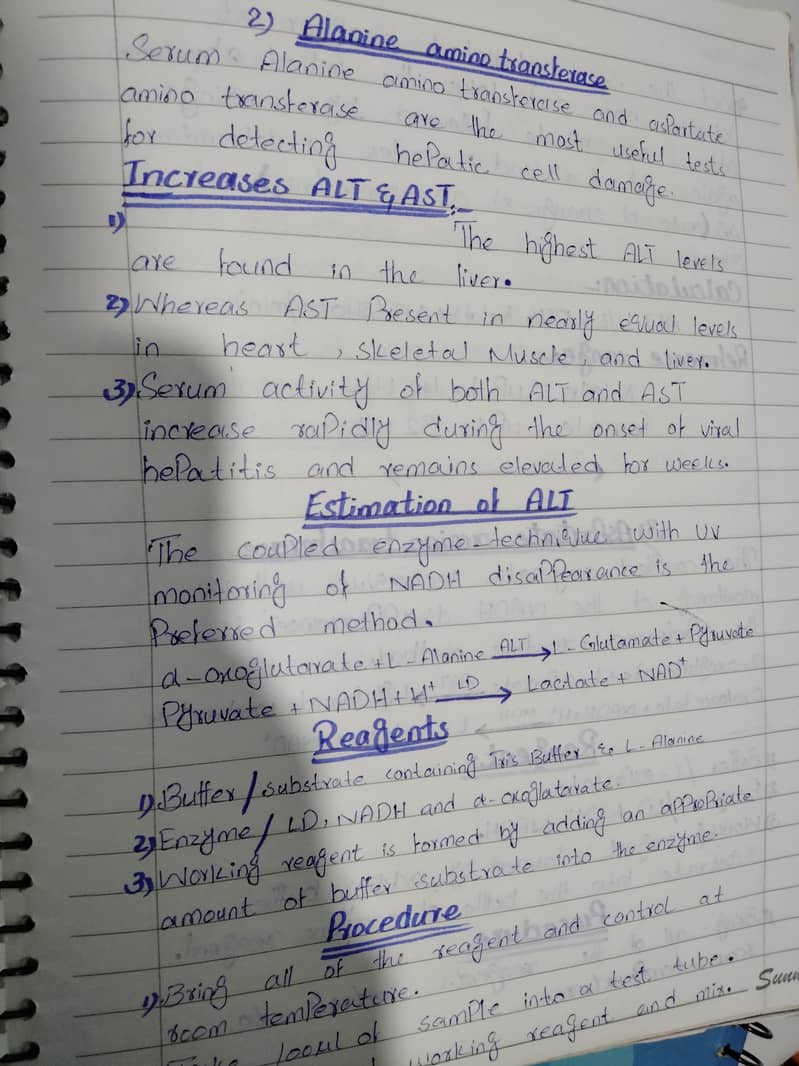 2) Alanine amino transferase
Serum Alanine amino transferase and aspartate
amino transferase are the most useful tests
for detecting hepatic cell damage.
Increases ALT & AST:-
1) The highest ALT levels
are found in the liver.
2) Whereas AST Present in nearly equal levels
in heart, skeletal Muscle and liver.
3) Serum activity of both ALT and AST
increase rapidly during the onset of viral
hepatitis and remains elevated for weeks.
Estimation of ALT
The coupled enzyme-technique with UV
monitoring of NADH disappearance is the
Preferred method.
α-oxoglutarate + L-Alanine ALT→ L-Glutamate + Pyruvate
Pyruvate + NADH + H⁺ LD→ Lactate + NAD⁺
Reagents
1) Buffer/substrate containing Tris Buffer & L-Alanine
2) Enzyme/LD, NADH and α-oxoglatarate.
3) Working reagent is formed by adding an appropriate
amount of buffer substrate into the enzyme.
Procedure
1) Bring all of the reagent and control at
room temperature.
100μl of sample into a test tube.
working reagent and mix.